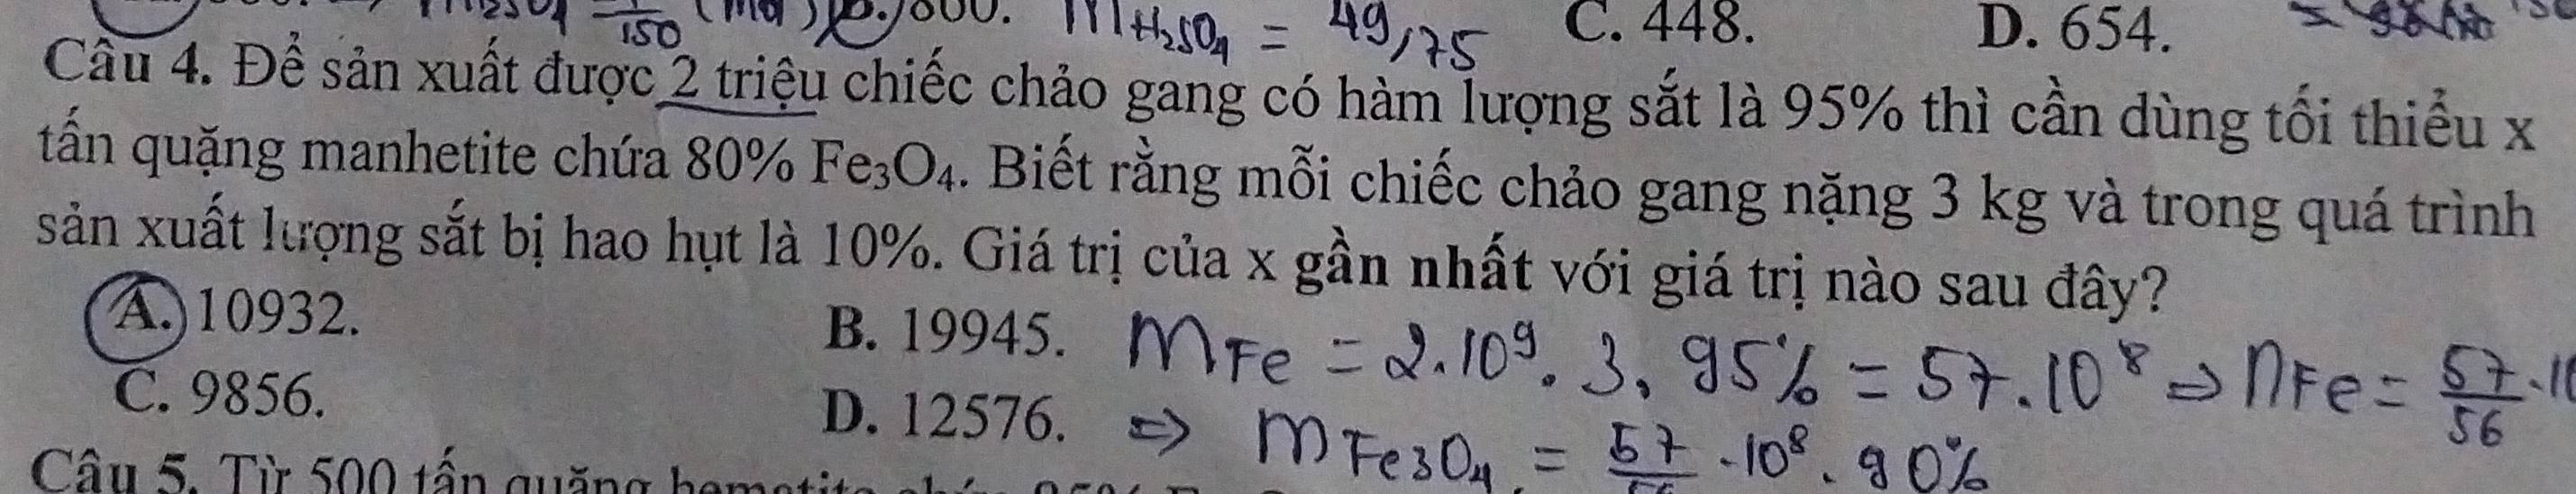 150 (mol) B. 800. mH₂SO₄ = 49,75 C. 448. D. 654.
Câu 4. Để sản xuất được 2 triệu chiếc chảo gang có hàm lượng sắt là 95% thì cần dùng tối thiểu x
tấn quặng manhetite chứa 80% Fe₃O₄. Biết rằng mỗi chiếc chảo gang nặng 3 kg và trong quá trình
sản xuất lượng sắt bị hao hụt là 10%. Giá trị của x gần nhất với giá trị nào sau đây?
A. 10932. B. 19945. mFe = 2.10⁹.3.95% = 57.10⁸ ⇒ nFe = 57/56
C. 9856. D. 12576. ⇒ mFe₃O₄ = 57/56 .10⁸.90%
Câu 5. Từ 500 tấn quặng hematite